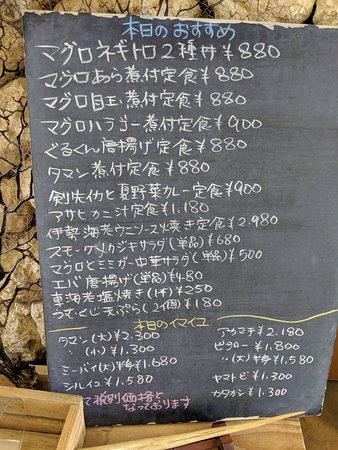 本日のおすすめ
マグロネギトロ2種丼¥880
マグロあら煮付定食¥880
マグロ目玉煮付定食¥880
マグロハラゴー煮付定食¥900
ぐるくん唐揚げ定食¥880
タマン煮付定食¥880
剣先イカと夏野菜カレー定食¥900
アサヒカニ汁定食¥1.180
伊勢海老ウニソース焼き定食¥2.980
スモークメカジキサラダ(単品)¥680
マグロとミミガー中華サラダ(単品)¥500
エバ唐揚げ(単品)¥480
車海老塩焼き(1本)¥250
つむぐじ天ぷら(2個)¥180
本日のイマイユ
タマン(大)¥2.300
〃(小)¥1.300
ミーバイ(大)半身¥1.680
シルイユ¥1.580
アカマチ¥2.180
ビタロー¥1.800
〃(大)半身¥1.580
ヤマトビ¥1.300
カタカシ¥1.300
て税別価格と
なっております